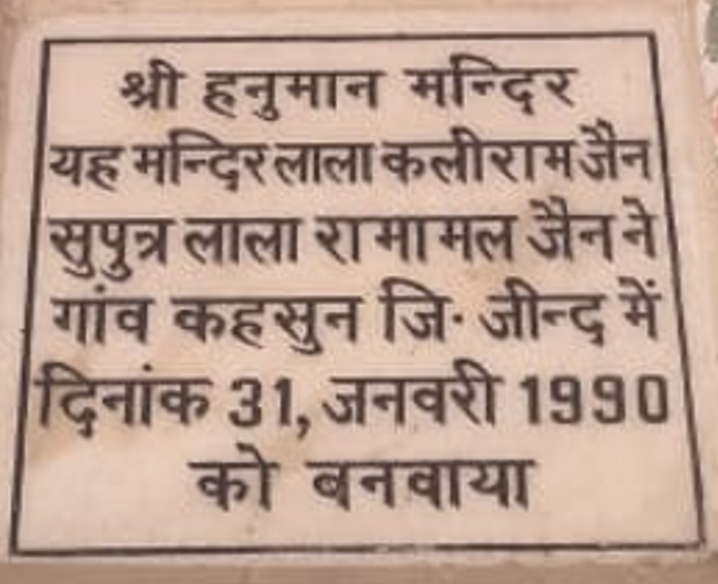 श्री हनुमान मन्दिर
यह मन्दिर लाला कलीराम जैन
सुपुत्र लाला रामामल जैन ने
गांव कहसुन जि॰ जीन्द में
दिनांक 31, जनवरी 1990
को बनवाया